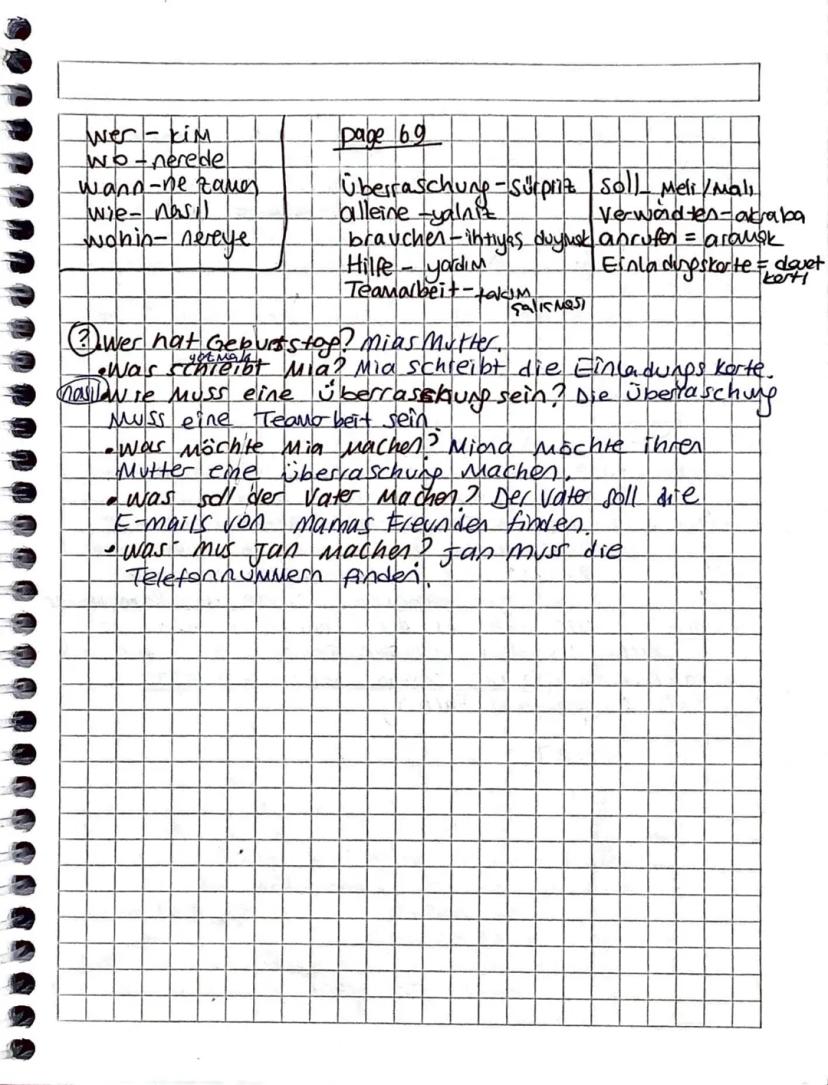 wer - kim
wo - nerede
wann - ne zaman
wie - nasıl
wohin - nereye
page 69
Überraschung - sürpriz
alleine - yalnız
brauchen - ihtiyaç duymak
Hilfe - yardım
Teamarbeit - takım
çalışması
soll - meli / malı
Verwandten - akraba
anrufen = aramak
Einladungskarte = davet
kartı
? Wer hat Geburtstag? Mias Mutter.
• Was schreibt Mia? Mia schreibt die Einladungs karte.
nasıl Wie muss eine Überraschung sein? Die Überraschung
muss eine Teamarbeit sein.
• Was möchte Mia machen? Miara möchte ihren
Mutter eine Überraschung machen.
• Was soll der Vater machen? Der Vater soll die
E-mails von mamas Freunden finden.
• Was mus Jan machen? Jan muss die
Telefonnummern finden.